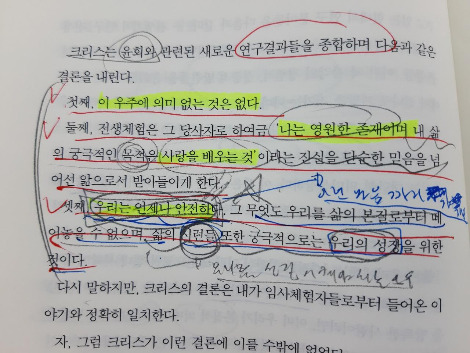 크리스는 윤회와 관련된 새로운 연구결과들을 종합하며 다음과 같은
결론을 내린다.
첫째, 이 우주에 의미 없는 것은 없다.
둘째, 전생체험은 그 당사자로 하여금 '나는 영원한 존재이며 내 삶
의 궁극적인 목적은 사랑을 배우는 것'이라는 진실을 단순한 믿음을 넘
어선 앎으로서 받아들이게 한다.
셋째, 우리는 언제나 안전하다. 그 무엇도 우리를 삶의 본질로부터 떼
어놓을 수 없으며, 삶의 시련들 또한 궁극적으로는 우리의 성장을 위한
것이다.
다시 말하지만, 크리스의 결론은 내가 임사체험자들로부터 들어온 이
야기와 정확히 일치한다.
자, 그럼 크리스가 이런 결론에 이를 수밖에 없었던